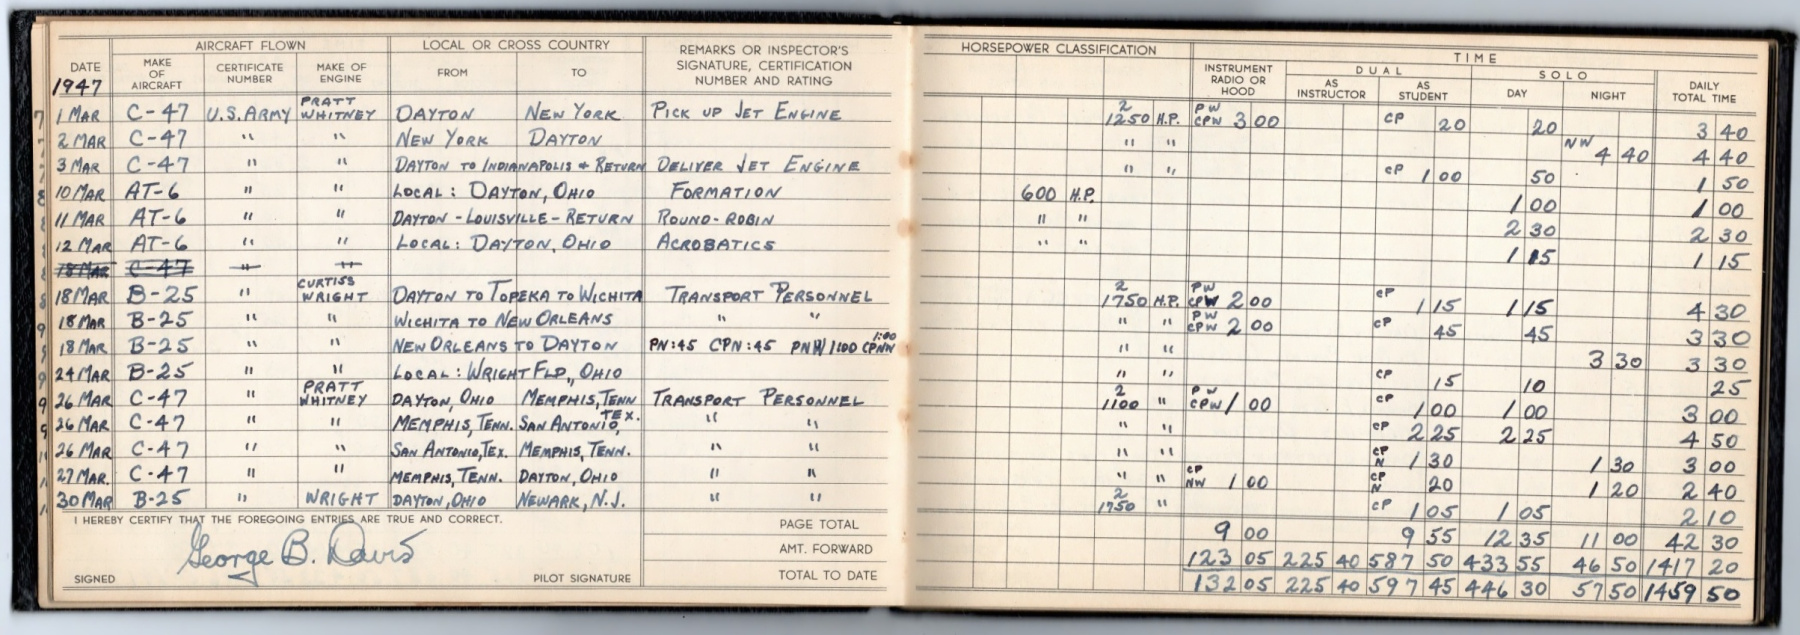 AIRCRAFT FLOWN LOCAL OR CROSS COUNTRY REMARKS OR INSPECTOR'S SIGNATURE, CERTIFICATION NUMBER AND RATING HORSEPOWER CLASSIFICATION TIME
DATE 1947 MAKE OF AIRCRAFT CERTIFICATE NUMBER MAKE OF ENGINE FROM TO INSTRUMENT RADIO OR HOOD DUAL AS INSTRUCTOR AS STUDENT SOLO DAY NIGHT DAILY TOTAL TIME
1 MAR C-47 U.S. ARMY PRATT WHITNEY DAYTON NEW YORK PICK UP JET ENGINE 2 1250 H.P. PW CPW 3 00 CP 20 20 3 40
2 MAR C-47 " " NEW YORK DAYTON " " NW 4 40 4 40
3 MAR C-47 " " DAYTON TO INDIANAPOLIS & RETURN DELIVER JET ENGINE " " CP 1 00 50 1 50
10 MAR AT-6 " " LOCAL: DAYTON, OHIO FORMATION 600 H.P. 1 00 1 00
11 MAR AT-6 " " DAYTON - LOUISVILLE - RETURN ROUND-ROBIN " " 2 30 2 30
12 MAR AT-6 " " LOCAL: DAYTON, OHIO ACROBATICS " " 1 15 1 15
18 MAR C-47 " "
18 MAR B-25 " CURTISS WRIGHT DAYTON TO TOPEKA TO WICHITA TRANSPORT PERSONNEL 2 1750 H.P. PW CPW 2 00 CP 1 15 1 15 4 30
18 MAR B-25 " " WICHITA TO NEW ORLEANS " " " " PW CPW 2 00 CP 45 45 3 30
18 MAR B-25 " " NEW ORLEANS TO DAYTON PN:45 CPN:45 PNW 1:00 CPNW 1:00 " " 3 30 3 30
24 MAR B-25 " " LOCAL: WRIGHT FLD., OHIO " " CP 15 10 25
26 MAR C-47 " PRATT WHITNEY DAYTON, OHIO MEMPHIS, TENN TRANSPORT PERSONNEL 2 1100 " PW CPW 1 00 CP 1 00 1 00 3 00
26 MAR C-47 " " MEMPHIS, TENN. SAN ANTONIO, TEX. " " " " CP 2 25 2 25 4 50
26 MAR C-47 " " SAN ANTONIO, TEX. MEMPHIS, TENN. " " " " CP N 1 30 1 30 3 00
27 MAR. C-47 " " MEMPHIS, TENN. DAYTON, OHIO " " " " CP NW 1 00 CP N 20 1 20 2 40
30 MAR B-25 " WRIGHT DAYTON, OHIO NEWARK, N.J. " " 2 1750 " CP 1 05 1 05 2 10
I HEREBY CERTIFY THAT THE FOREGOING ENTRIES ARE TRUE AND CORRECT. PAGE TOTAL 9 00 9 55 12 35 11 00 42 30
George B. Davis AMT. FORWARD 123 05 225 40 587 50 433 55 46 50 1417 20
SIGNED PILOT SIGNATURE TOTAL TO DATE 132 05 225 40 597 45 446 30 57 50 1459 50